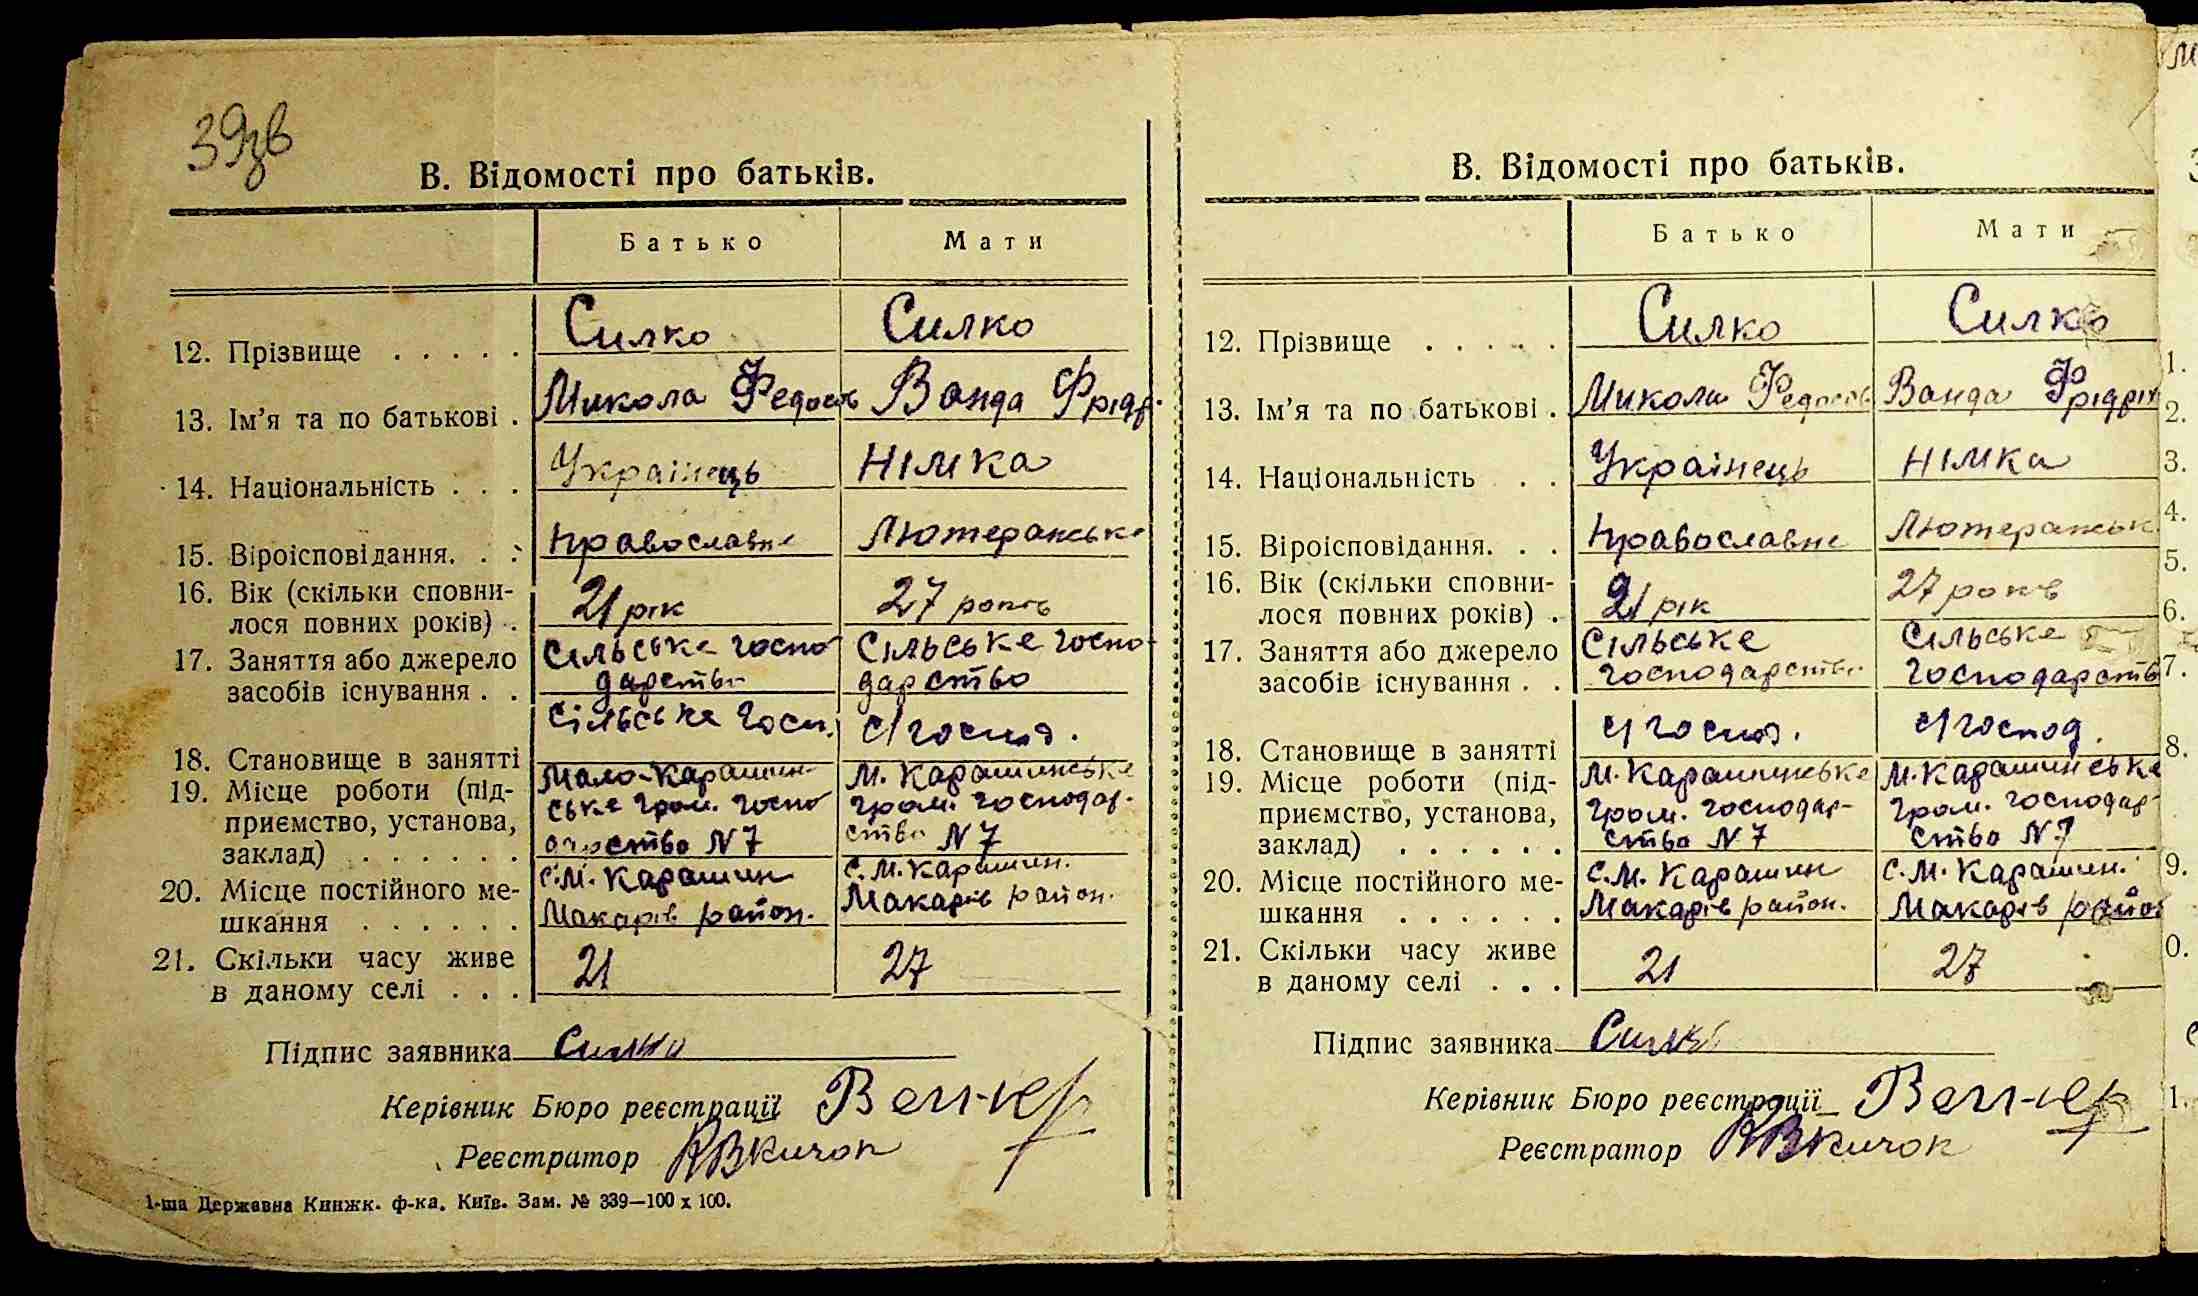 39зв
В. Відомості про батьків.
Батько Мати
12. Прізвище . . . . . Силко Силко
13. Ім'я та по батькові . Микола Федос Ванда Фрідр.
14. Національність . . . Українець Німка
15. Віроісповідання. . . Православне Лютеранське
16. Вік (скільки сповни-
лося повних років) . 21 рік 27 років
17. Заняття або джерело Сільське госпо Сільське госпо-
засобів існування . . дарство дарство
18. Становище в занятті Сільське Госп. с/господ.
19. Місце роботи (під- Мало-Карашин- М. Карашинське
приємство, установа, ське гром. госпо гром. господар-
заклад) . . . . . . дарство N 7 ство N 7
20. Місце постійного ме- с. М. Карашин с. М. Карашин.
шкання . . . . . . Макарів район. Макарів район.
21. Скільки часу живе
в даному селі . . . 21 27
Підпис заявника Силко
Керівник Бюро реєстрації
Реєстратор
1-ша Державна Книжк. ф-ка. Київ. Зам. № 339—100 х 100.
В. Відомості про батьків.
Батько Мати
12. Прізвище . . . . . Силко Силко
13. Ім'я та по батькові . Микола Федосов Ванда Фрідріх
14. Національність . . Українець Німка
15. Віроісповідання. . . Православне Лютеранськ
16. Вік (скільки сповни-
лося повних років) . 21 рік 27 років
17. Заняття або джерело Сільське Сільське
засобів існування . . господарство господарств
18. Становище в занятті с/госпо. с/господ.
19. Місце роботи (під- М. Карашинське М. Карашинське
приємство, установа, гром. господар- гром. господар-
заклад) . . . . . . ство N 7 ство N 7
20. Місце постійного ме- с. М. Карашин с. М. Карашин.
шкання . . . . . . Макарів район. Макарів район
21. Скільки часу живе
в даному селі . . . 21 27
Підпис заявника Силко
Керівник Бюро реєстрації
Реєстратор
1.
2.
3.
4.
5.
6.
7.
8.
9.
0.
1.